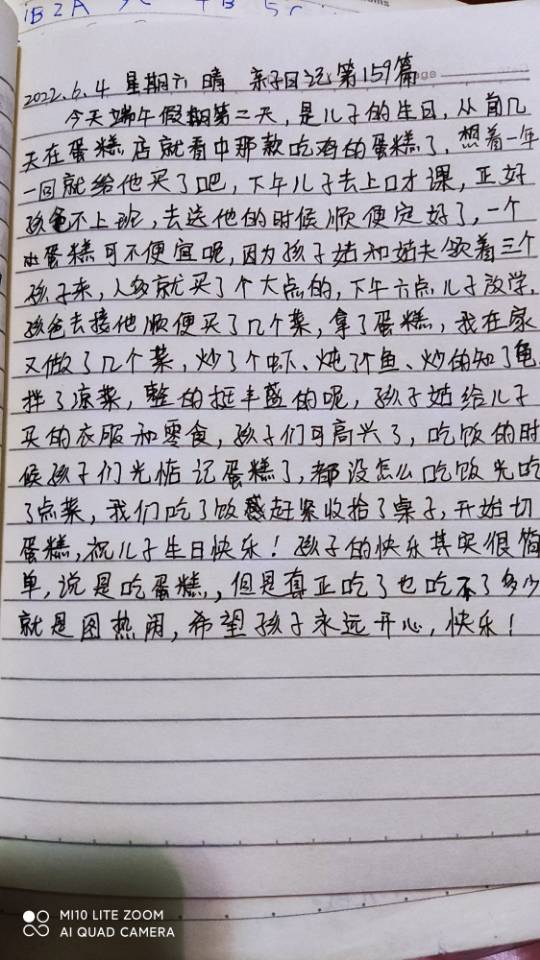 2022.6.4 星期六 晴 亲子日记第159篇
今天端午假期第二天,是儿子的生日,从前几
天在蛋糕店就看中那款吃鸡的蛋糕了,想着一年
一回就给他买了吧,下午儿子去上口才课,正好
孩爸不上班,去送他的时候顺便定好了,一个
蛋糕可不便宜呢,因为孩子姑和姑夫领着三个
孩子来,人多就买了个大点的,下午六点儿子放学,
孩爸去接他顺便买了几个菜,拿了蛋糕,我在家
又做了几个菜,炒了个虾、炖个鱼、炒的知了龟
拌了凉菜,整的挺丰盛的呢,孩子姑给儿子
买的衣服和零食,孩子们可高兴了,吃饭的时
候孩子们光惦记蛋糕了,都没怎么吃饭先吃
了点菜,我们吃了饭赶紧收拾了桌子,开始切
蛋糕,祝儿子生日快乐!孩子的快乐其实很简
单,说是吃蛋糕,但是真正吃了也吃不了多少
就是图热闹,希望孩子永远开心,快乐!
MI10 LITE ZOOM
AI QUAD CAMERA